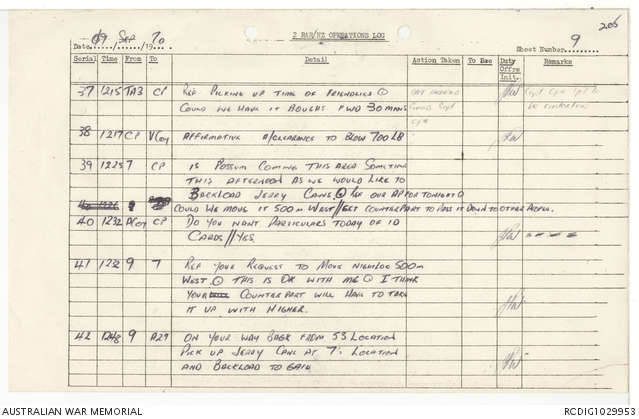 206
2 RAR/NZ OPERATIONS LOG
Date 09 Sep /19 70
Sheet Number 9
Serial Time From To Detail Action Taken To Exe Duty Offrs Initr. Remarks
37 1215 TA3 CP REF PICKING UP TIME OF FRIENDLIES
COULD WE HAVE IT BOUGHT FWD 30 MINS
38 1217 CP V Coy AFFIRMATIVE A/CLEARANCE TO BLOW 700 LB
39 1225 7 CP IS POSSUM COMING THIS AREA SOMETIME
THIS AFTERNOON AS WE WOULD LIKE TO
BACKLOAD JERRY CANS REF OUR AP FOR TONIGHT
COULD WE MOVE IT 500m WEST//GET COUNTERPART TO PASS IT DOWN TO OTHER PEOPLE.
40 1232 D Coy CP DO YOU WANT PARTICULARS TODAY OF ID
CARDS//YES
41 1232 9 7 REF YOUR REQUEST TO MOVE NIGHTLOC 500m
WEST. THIS IS OK WITH ME I THINK
YOUR COUNTERPART WILL HAVE TO TAKE
IT UP WITH HIGHER.
42 1248 9 P29 ON YOUR WAY BACK FROM 53 LOCATION
PICK UP JERRY CANS AT 7's LOCATION
AND BACKLOAD TO
AUSTRALIAN WAR MEMORIAL
RCDIG1029953